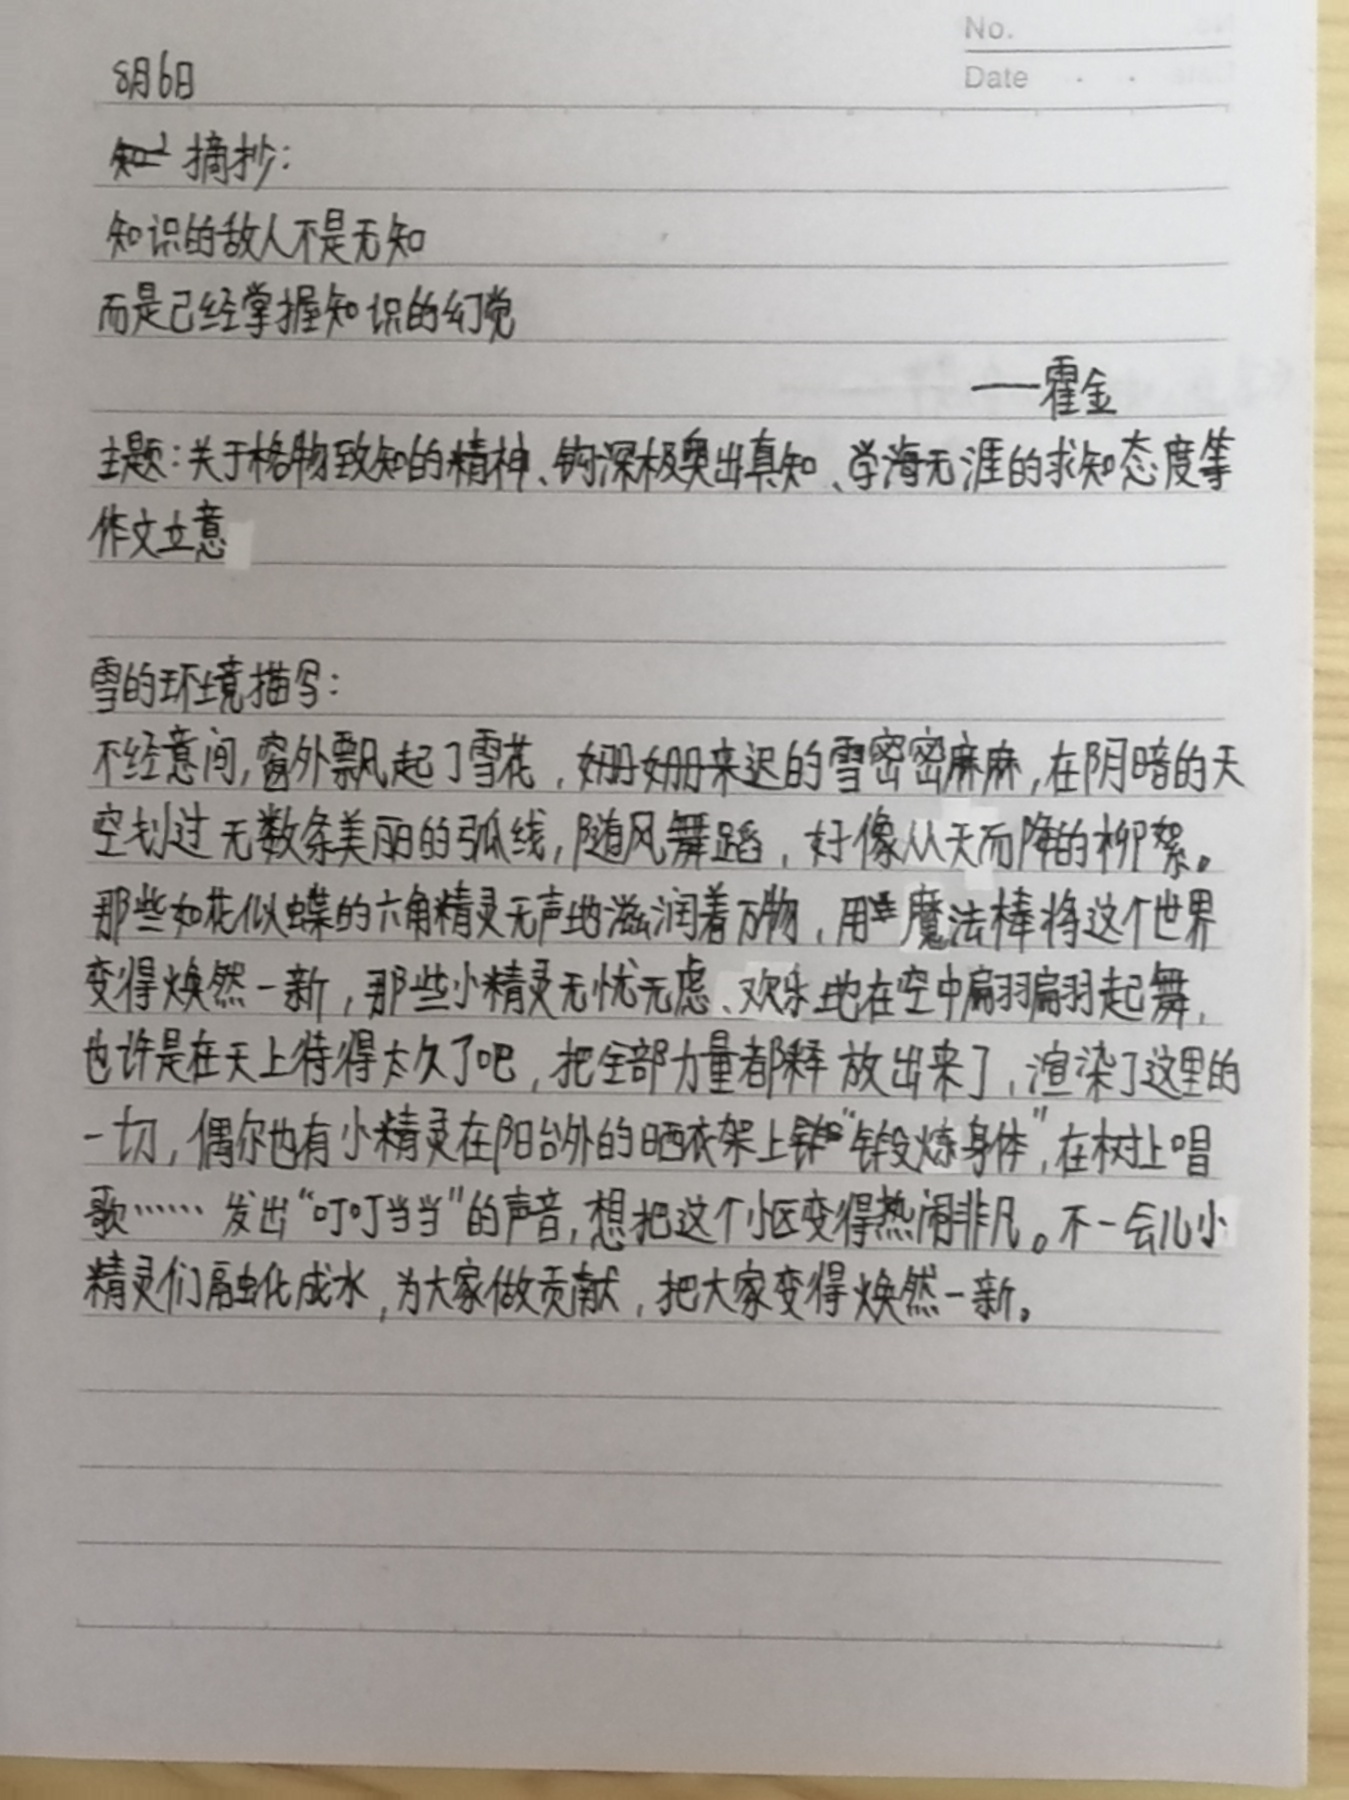 No.
Date
8月6日
摘抄：
知识的敌人不是无知
而是已经掌握知识的幻觉
——霍金
主题：关于格物致知的精神、钩深极奥出真知、学海无涯的求知态度等
作文立意
雪的环境描写：
不经意间，窗外飘起了雪花，姗姗来迟的雪密密麻麻，在阴暗的天
空划过无数条美丽的弧线，随风舞蹈，好像从天而降的柳絮。
那些如花似蝶的六角精灵无声地滋润着万物，用魔法棒将这个世界
变得焕然一新，那些小精灵无忧无虑、欢乐地在空中扁羽扁羽起舞，
也许是在天上待得太久了吧，把全部力量都释放出来了，渲染了这里的
一切，偶尔也有小精灵在阳台外的晒衣架上“锻炼身体”，在树上唱
歌……发出“叮叮当当”的声音，想把这个小区变得热闹非凡。不一会儿小
精灵们融化成水，为大家做贡献，把大家变得焕然一新。